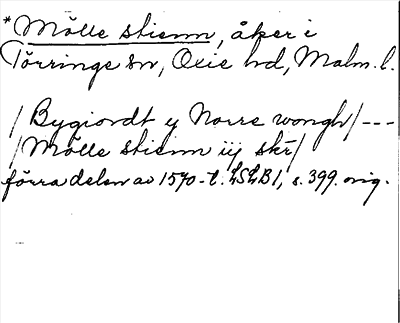 *Mölle stienn, åker i
Törringe sn, Oxie hd, Malm. l.
/Bygiordt y Norre wongh/---
/Mölle stienn iij skr/
förra delen av 1570-t. LSLB1, s. 399. orig.